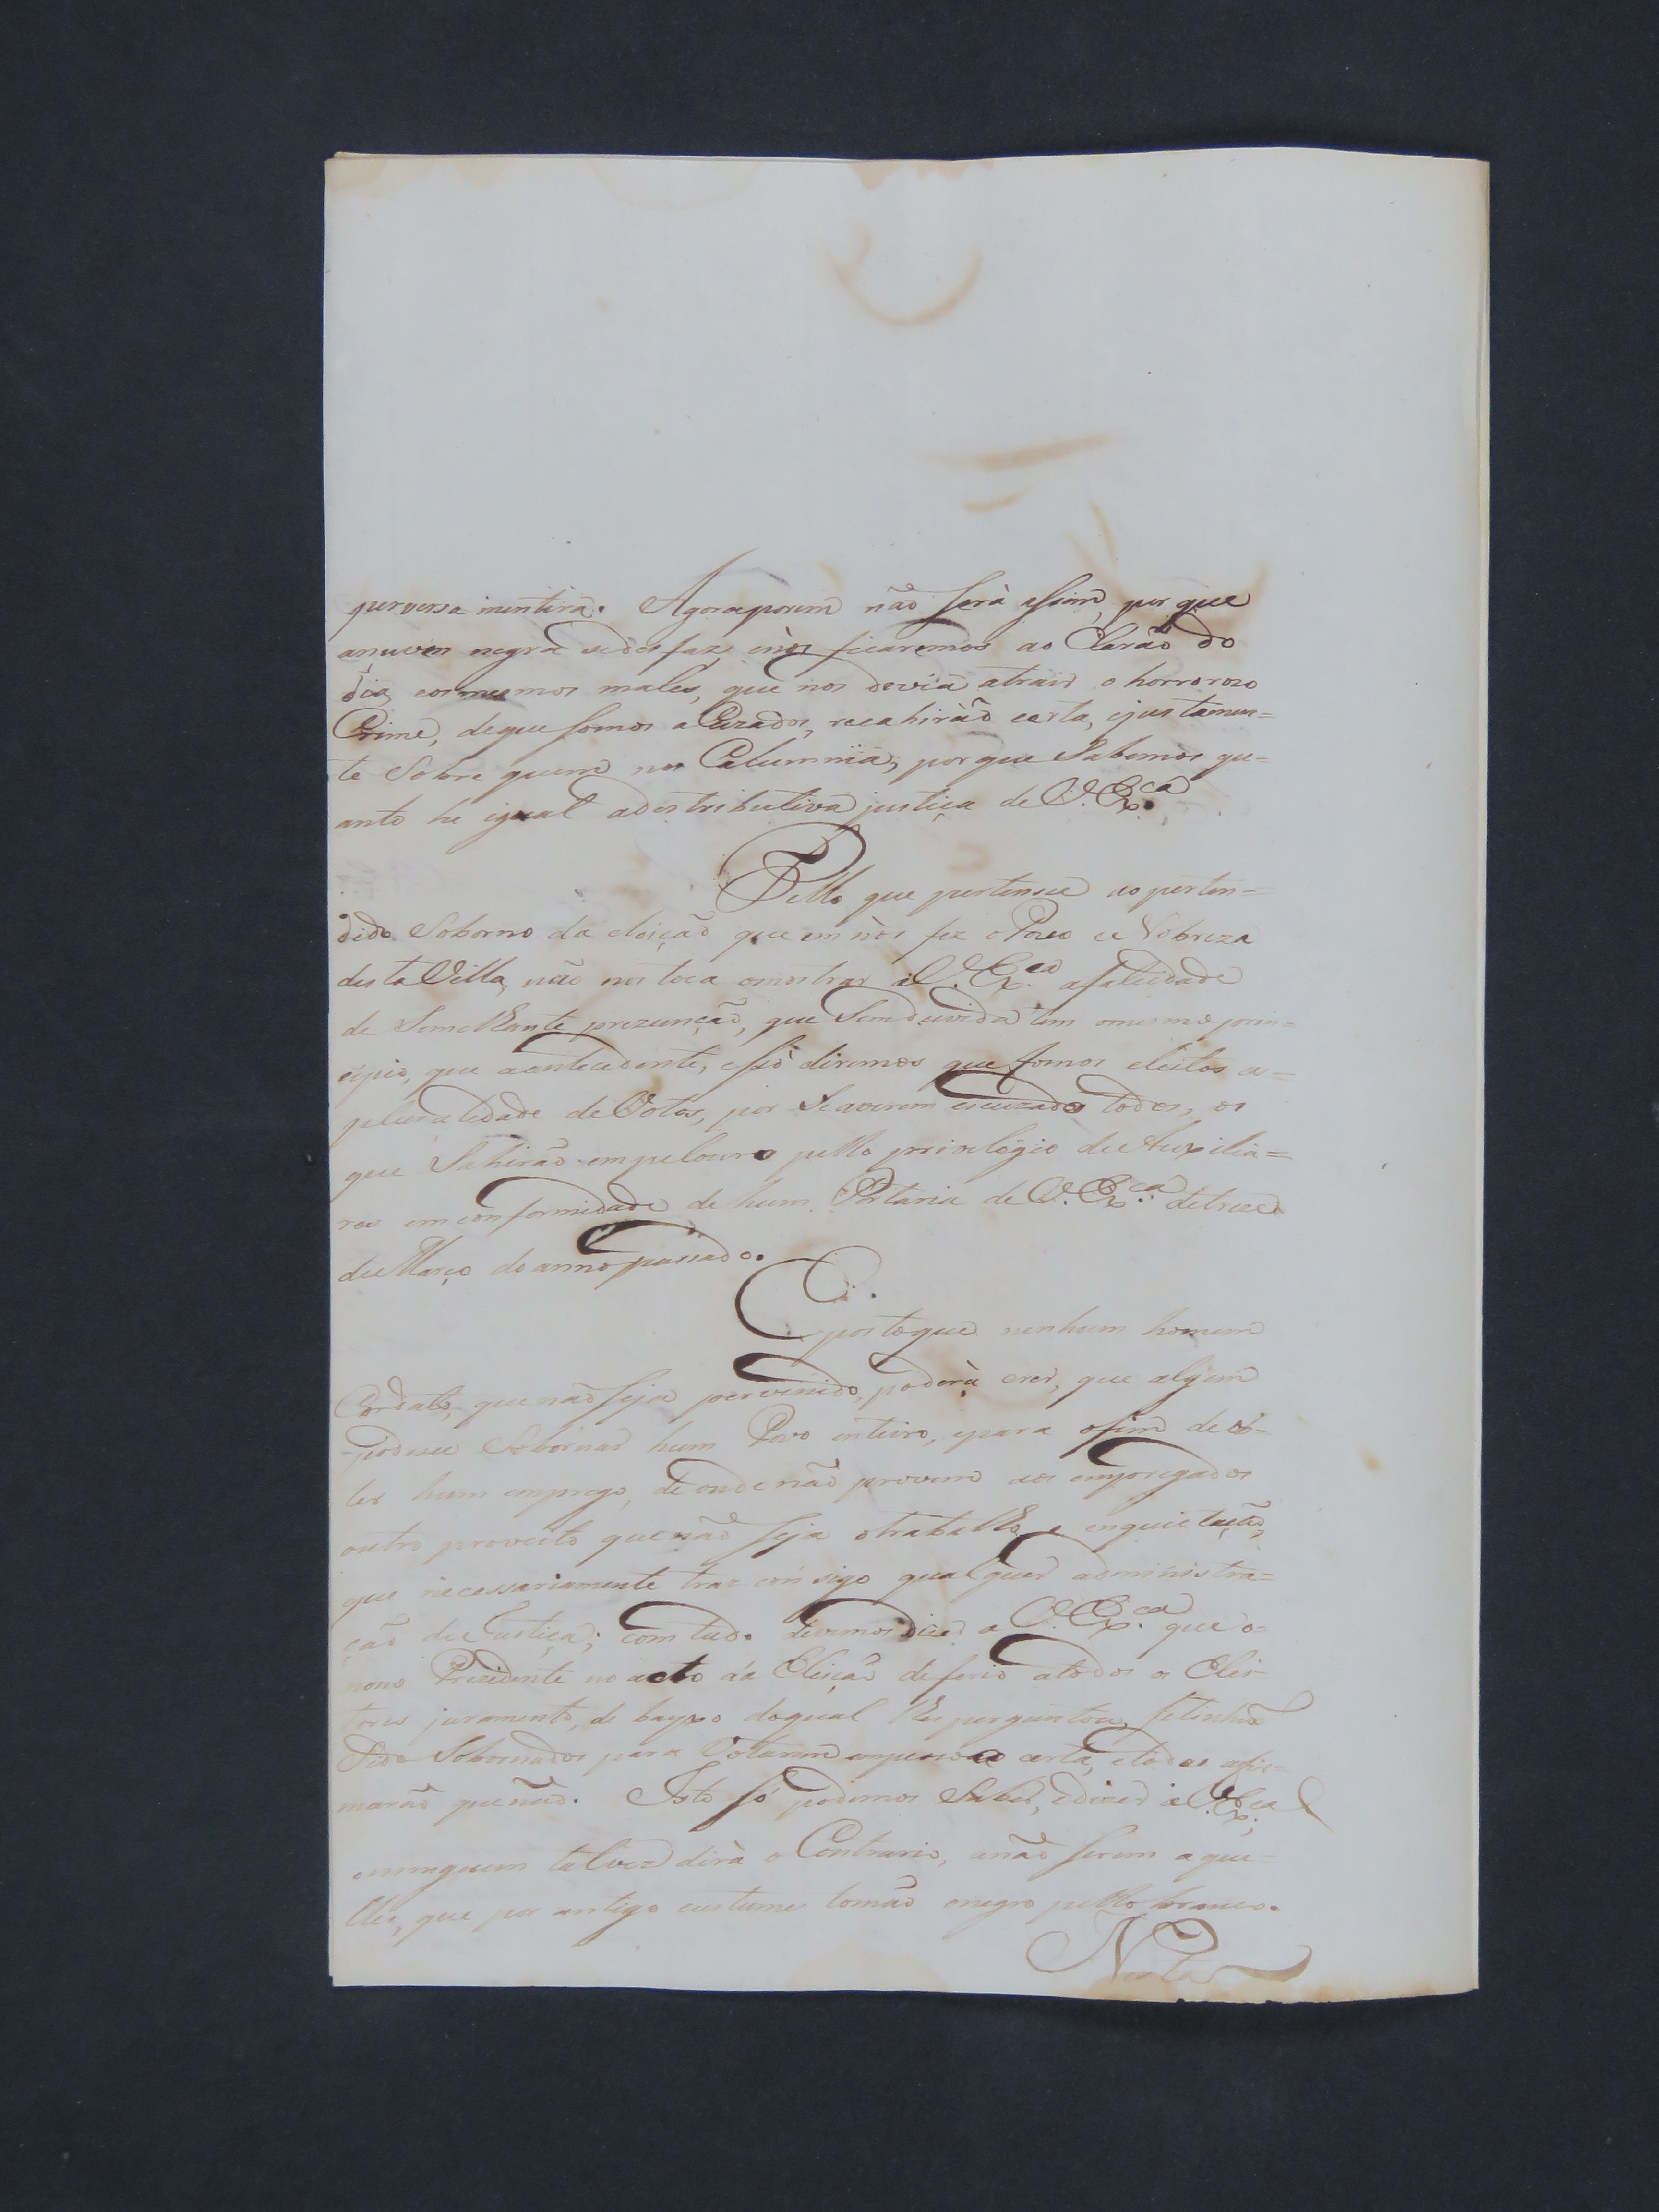 perversa mentira. Agora porem não serà assim, por que
anuvem negra sedesfaz, enòs ficaremos ao Clarão do
dia, eosmesmos males, que nos devia atrair o horrorozo
Crime, deque somos acuzados, recahirão certa, ejustamen=
te Sobre quem nos Calumnia, por que Sabemos qu=
anto he igual adestributiva justiça de V. Exca.
Pello que pertensse ao perten=
dido Soborno da eleição que em nòs fez o Povo e Nobreza
desta Villa, não nos toca omostrar a V. Exca. afalcidade
de Semelhante prezunção, que Semduvida tem omesmo prin=
cipio, que aantecedente, esò diremos que fomos eleitos a=
pluralidade de Votos, por Seaverem escuzado todos, os
que Sahirão empelouro pello privilegio de Auxilia=
res em conformidade de hum. Portaria de V. Exca. detreze
de Março do anno passado.
E posto que nenhum homem
Cordato, que não seja pervenido, poderà crer, que algem
podesse Sobornar hum Povo inteiro, epara ofim de ob-
ter hum emprego, de onde não provem aos empregados
outro proveito que não seja otrabalho, e enquietação,
que necessariamente traz consigo qualquer administra=
ção de Justiça; com tudo devemos dizer a V. Exca. que o=
novo Prezidente no acto da Eleição deferio atodos os Elei-
tores juramento, de bayxo doqual lhes perguntou, setinhão
Sido Sobornados para Votarem empessoa certa, etodos afir=
marão que não. Isto sò podemos Saber, edizer a V. Exca.;
eninguem talvez dirà o Contrario, anão serem aque-
lles, que por antigo custume tomão onegro pello branco.